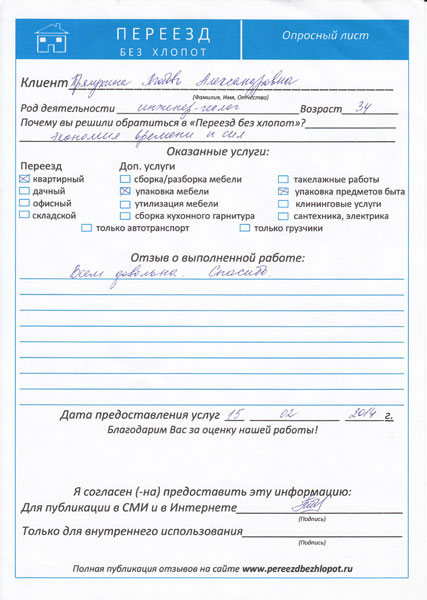 ПЕРЕЕЗД
БЕЗ ХЛОПОТ
Опросный лист
Клиент Любовь Александровна
(Фамилия, Имя, Отчество)
Род деятельности инженер-геолог Возраст 34
Почему вы решили обратиться в «Переезд без хлопот»?
экономия времени и сил
Оказанные услуги:
Переезд Доп. услуги
квартирный сборка/разборка мебели такелажные работы
дачный упаковка мебели упаковка предметов быта
офисный утилизация мебели клининговые услуги
складской сборка кухонного гарнитура сантехника, электрика
только автотранспорт только грузчики
Отзыв о выполненной работе:
Всем довольна. Спасибо.
Дата предоставления услуг 15 02 2014 г.
Благодарим Вас за оценку нашей работы!
Я согласен (-на) предоставить эту информацию:
Для публикации в СМИ и в Интернете
(Подпись)
Только для внутреннего использования
(Подпись)
Полная публикация отзывов на сайте www.pereezdbezhlopot.ru